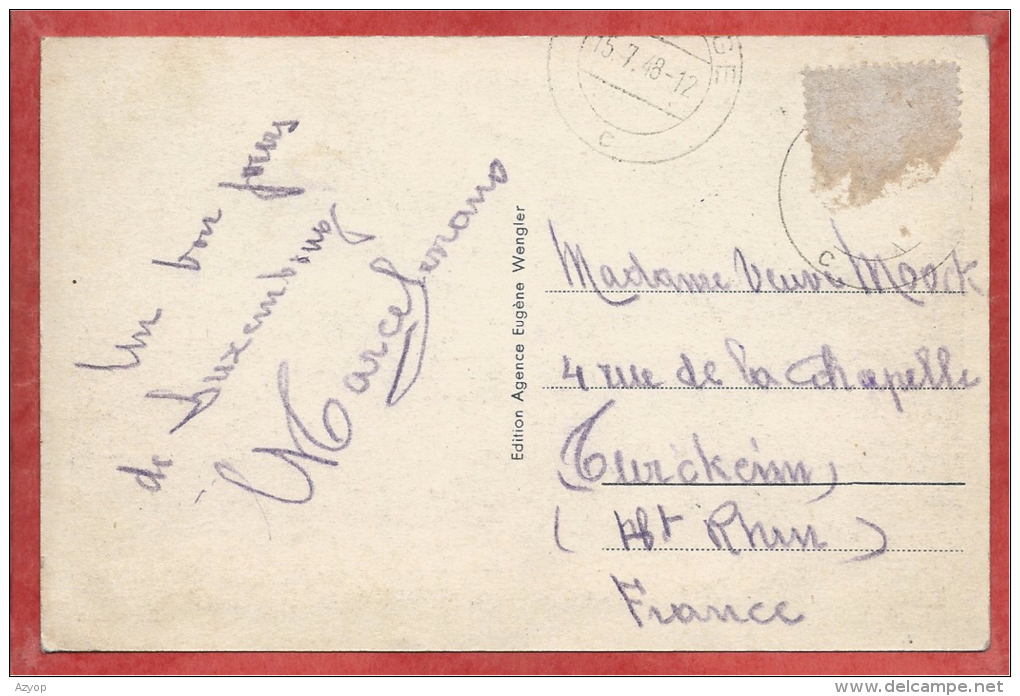 Un bon jour
de Luxembourg
Marcel
Edition Agence Eugène Wengler
15.7.48-12
GE
c
Madame Veuve Mook
4 rue de la Chapelle
Turckeim
(Ht Rhin)
France
c
Azyop
www.delcampe.net